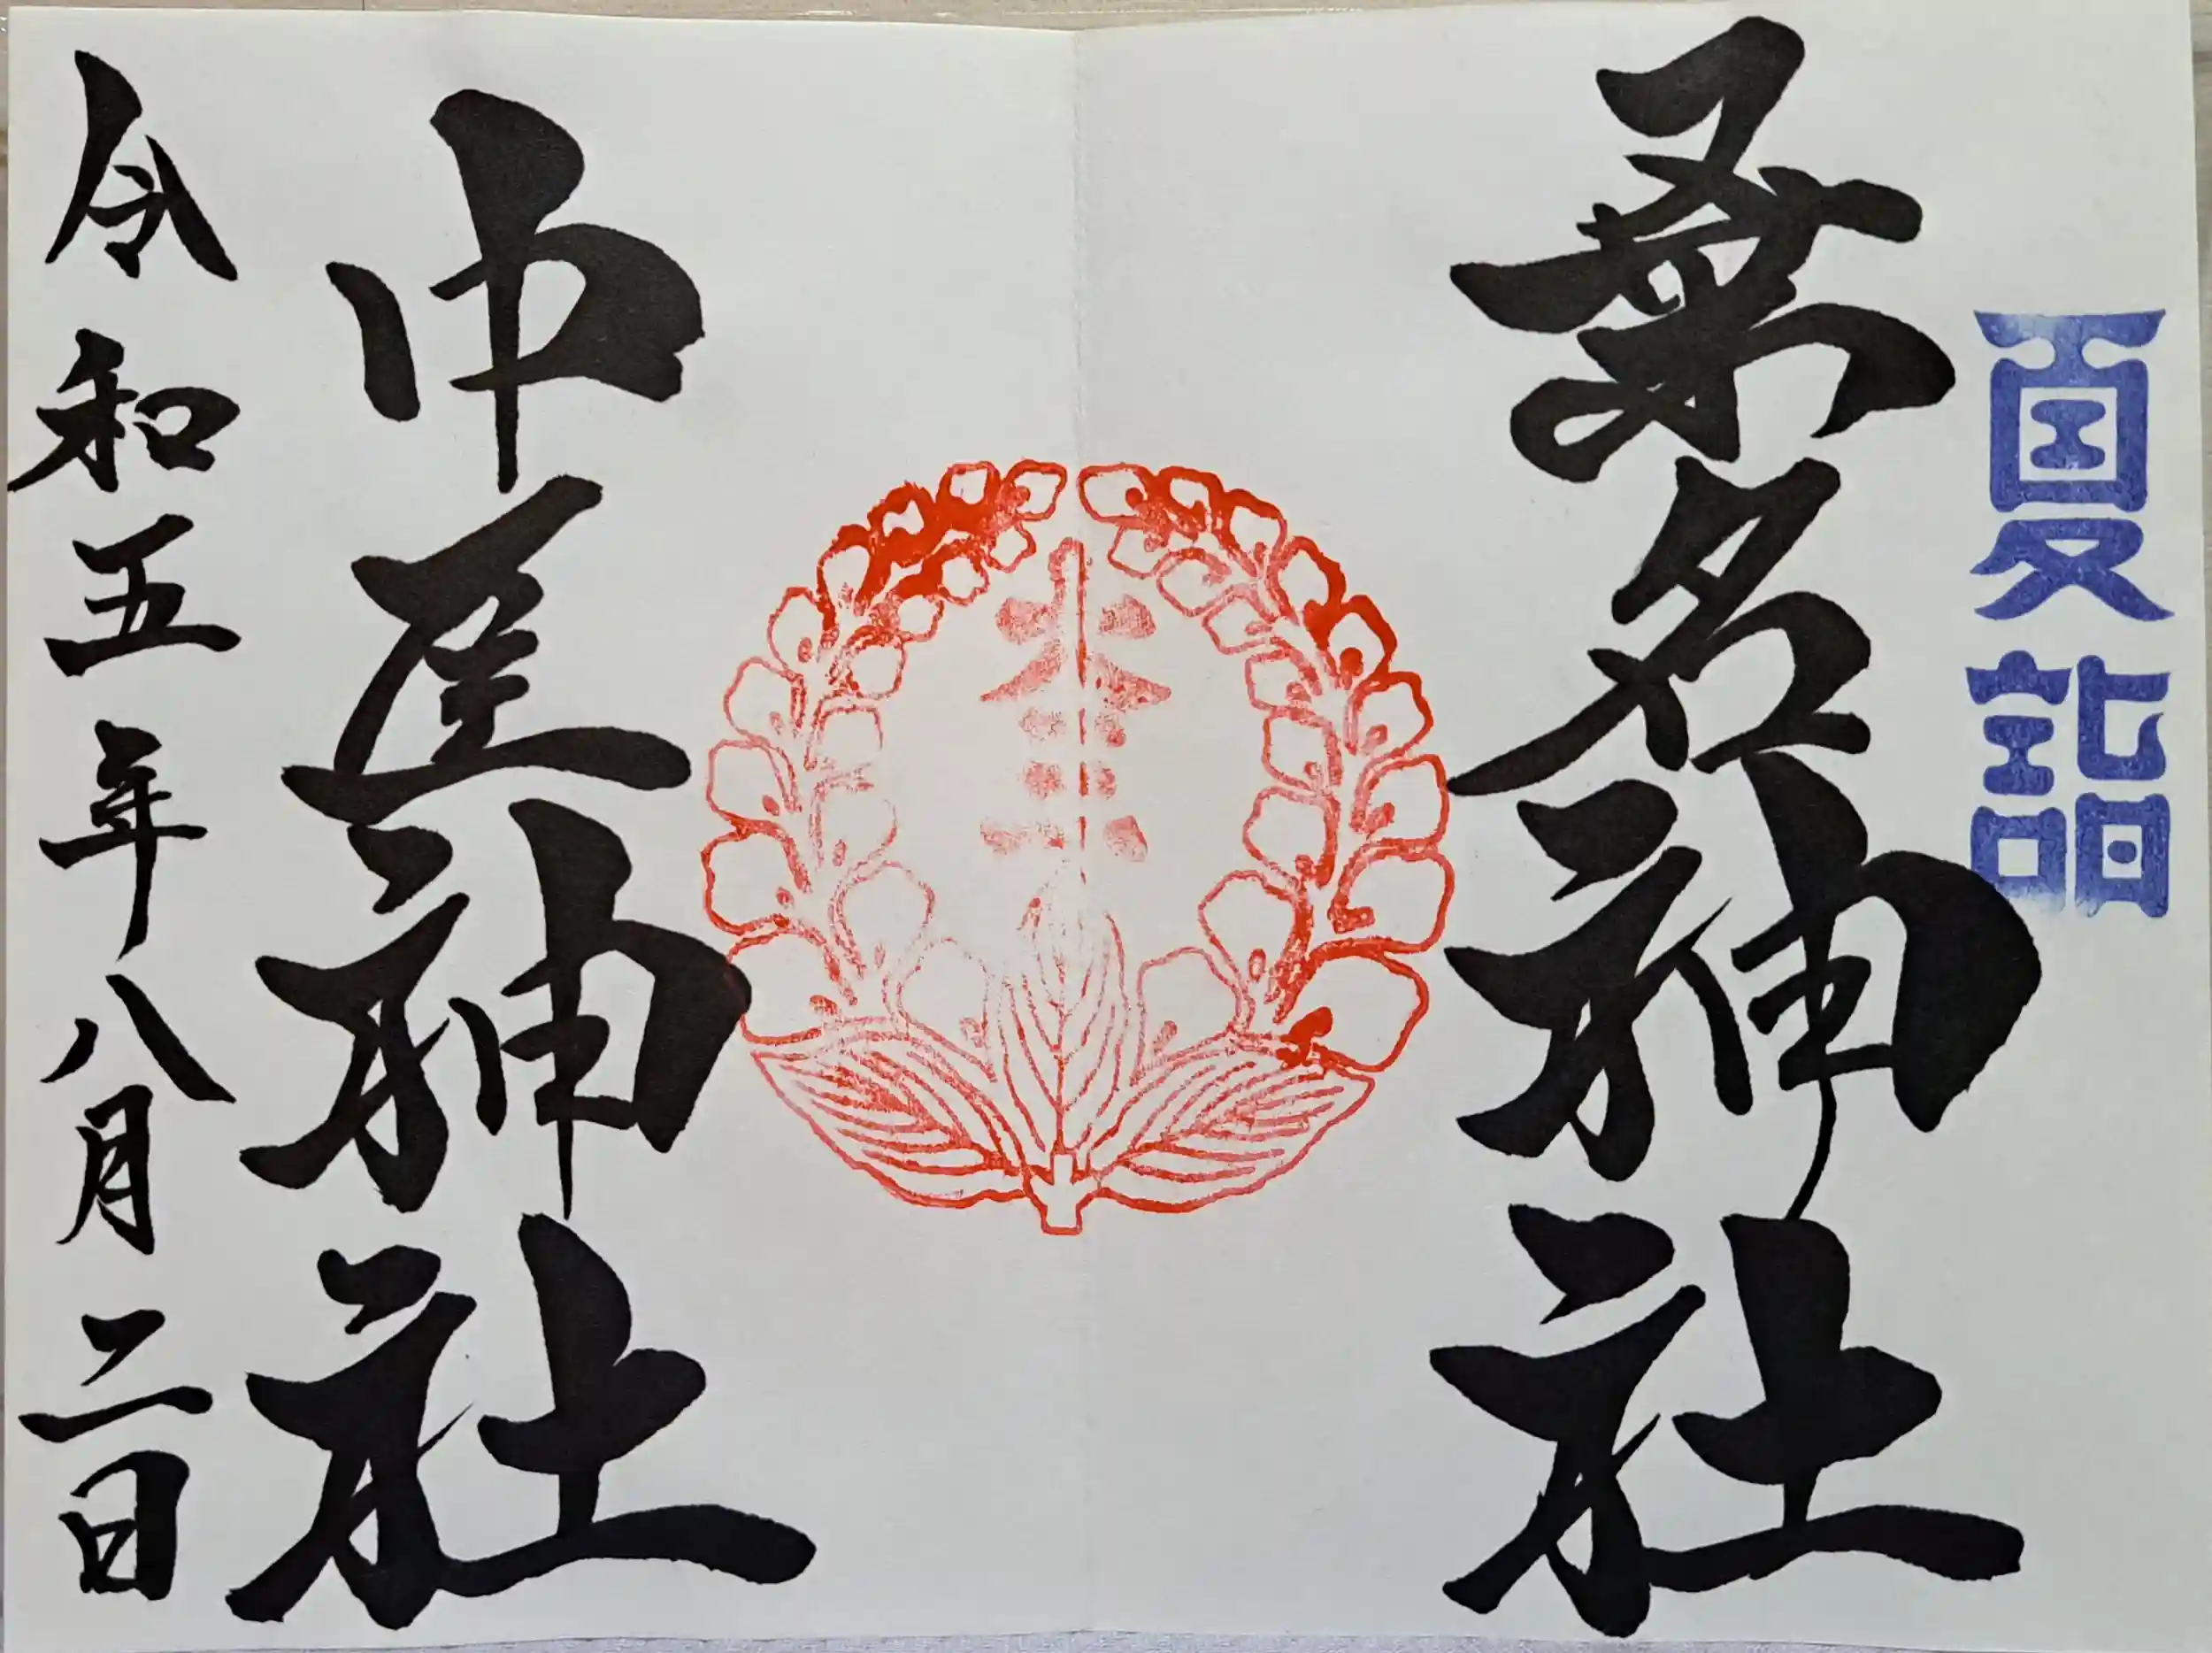 夏詣
桑名神社
中臣神社
令和五年八月二日